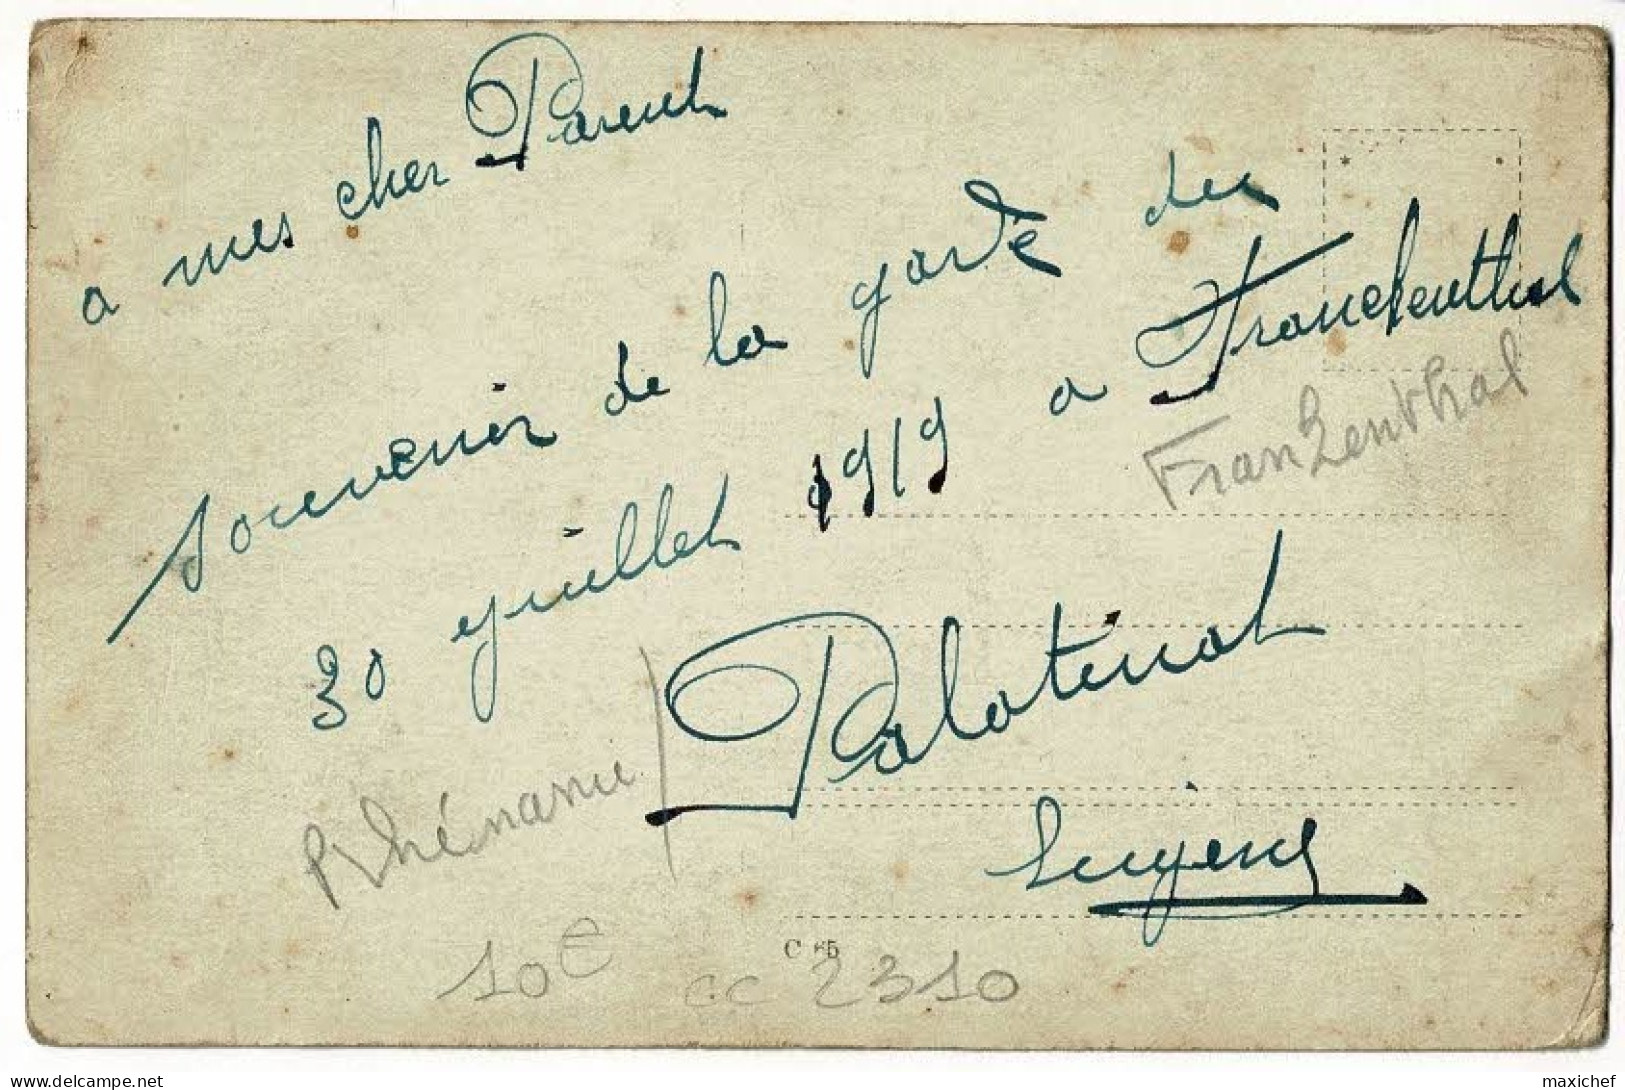 a mes cher Parent
souvenir de la garde du
30 juillet 1919 a Franckenthal
Frankenthal
Palatinat
Rhénanie
Eugene
C 65
10€ cc 2310
maxichef